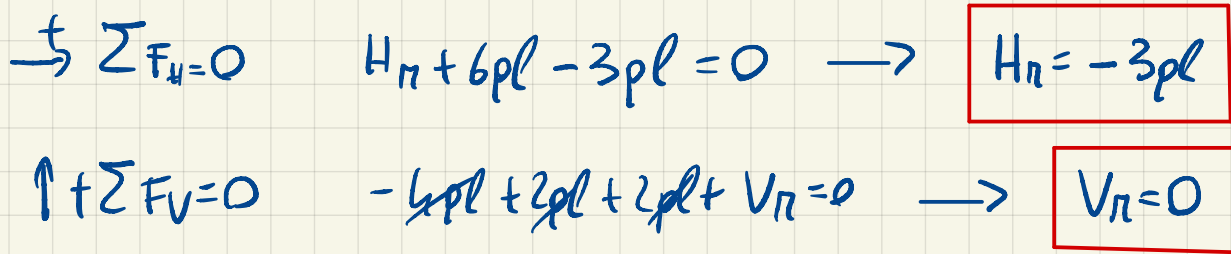 →+ ΣF_H=0 H_n + 6pl - 3pl = 0 → H_n = -3pl
↑+ΣF_V=0 -4pl + 2pl + 2pl + V_n = 0 → V_n = 0